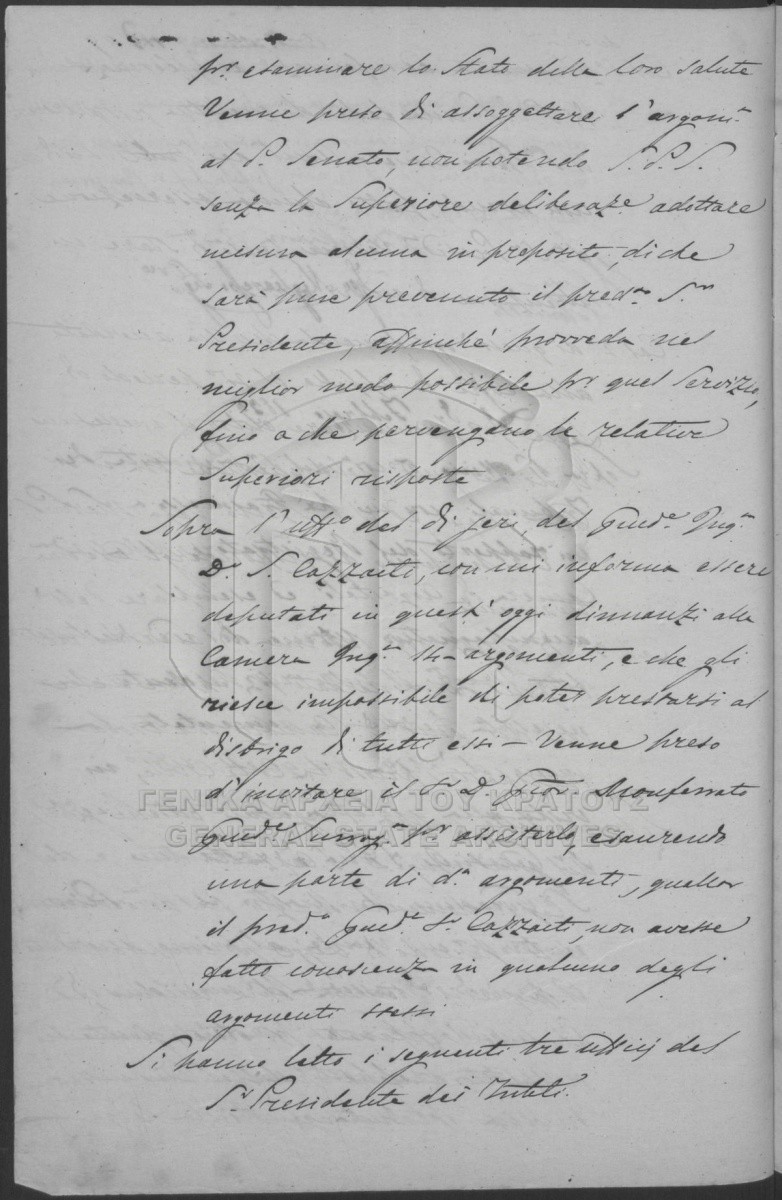 pr. esaminare lo Stato della loro salute
Venne preso di assoggettare l'argomo
al P. Senato, non potendo S. P. S.
senza la Superiore deliberaze adottare
misura alcuna in proposito, di che
sarà pure prevenuto il predo Sr
Presidente, affinchè provveda nel
miglior modo possibile pr quel Servizio,
fino a che pervengano le relative
Superiori risposte
Sopra l'uffo del di jeri, del Giude Inqe
Dr S. Cazzaiti, con cui informa essere
deputati in quest'oggi dinnanzi alla
Camera Inqe 14 argomenti, e che gli
riesce impossibile di poter prestarsi al
disbrigo di tutti essi – Venne preso
d'invitare il Sr Dr Gior. Monferrato
Giude Surroge pr assisterlo, esaurendo
una parte di di argomenti, quallor
il predo Giude Sr Cazzaiti, non avesse
fatto conoscenza in qualcuno degli
argomenti stessi
Si hanno letto i seguenti tre ufficj del
Sr Presidente dei Tribli.
ΓΕΝΙΚΑ ΑΡΧΕΙΑ ΤΟΥ ΚΡΑΤΟΥΣ
GENERAL STATE ARCHIVES